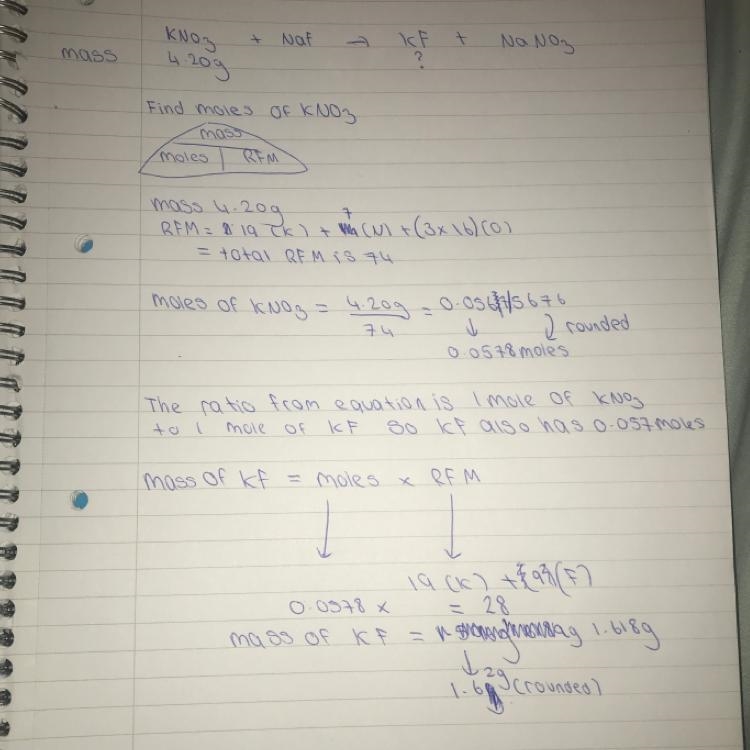 KNO3 + NaF → KF + NaNO3
mass 4.20g ?
Find moles of KNO3
mass
moles | RFM
mass 4.20g
RFM = 19 (K) + 7 (N) + (3x16)(O)
= total RFM is 74
moles of KNO3 = 4.20g / 74 = 5676
rounded
0.0578 moles
The ratio from equation is 1 mole of KNO3
to 1 mole of KF so KF also has 0.057 moles
mass of KF = moles x RFM
19 (K) + 9 (F)
0.0578 x = 28
mass of KF = 1.618g
1.62g (rounded)